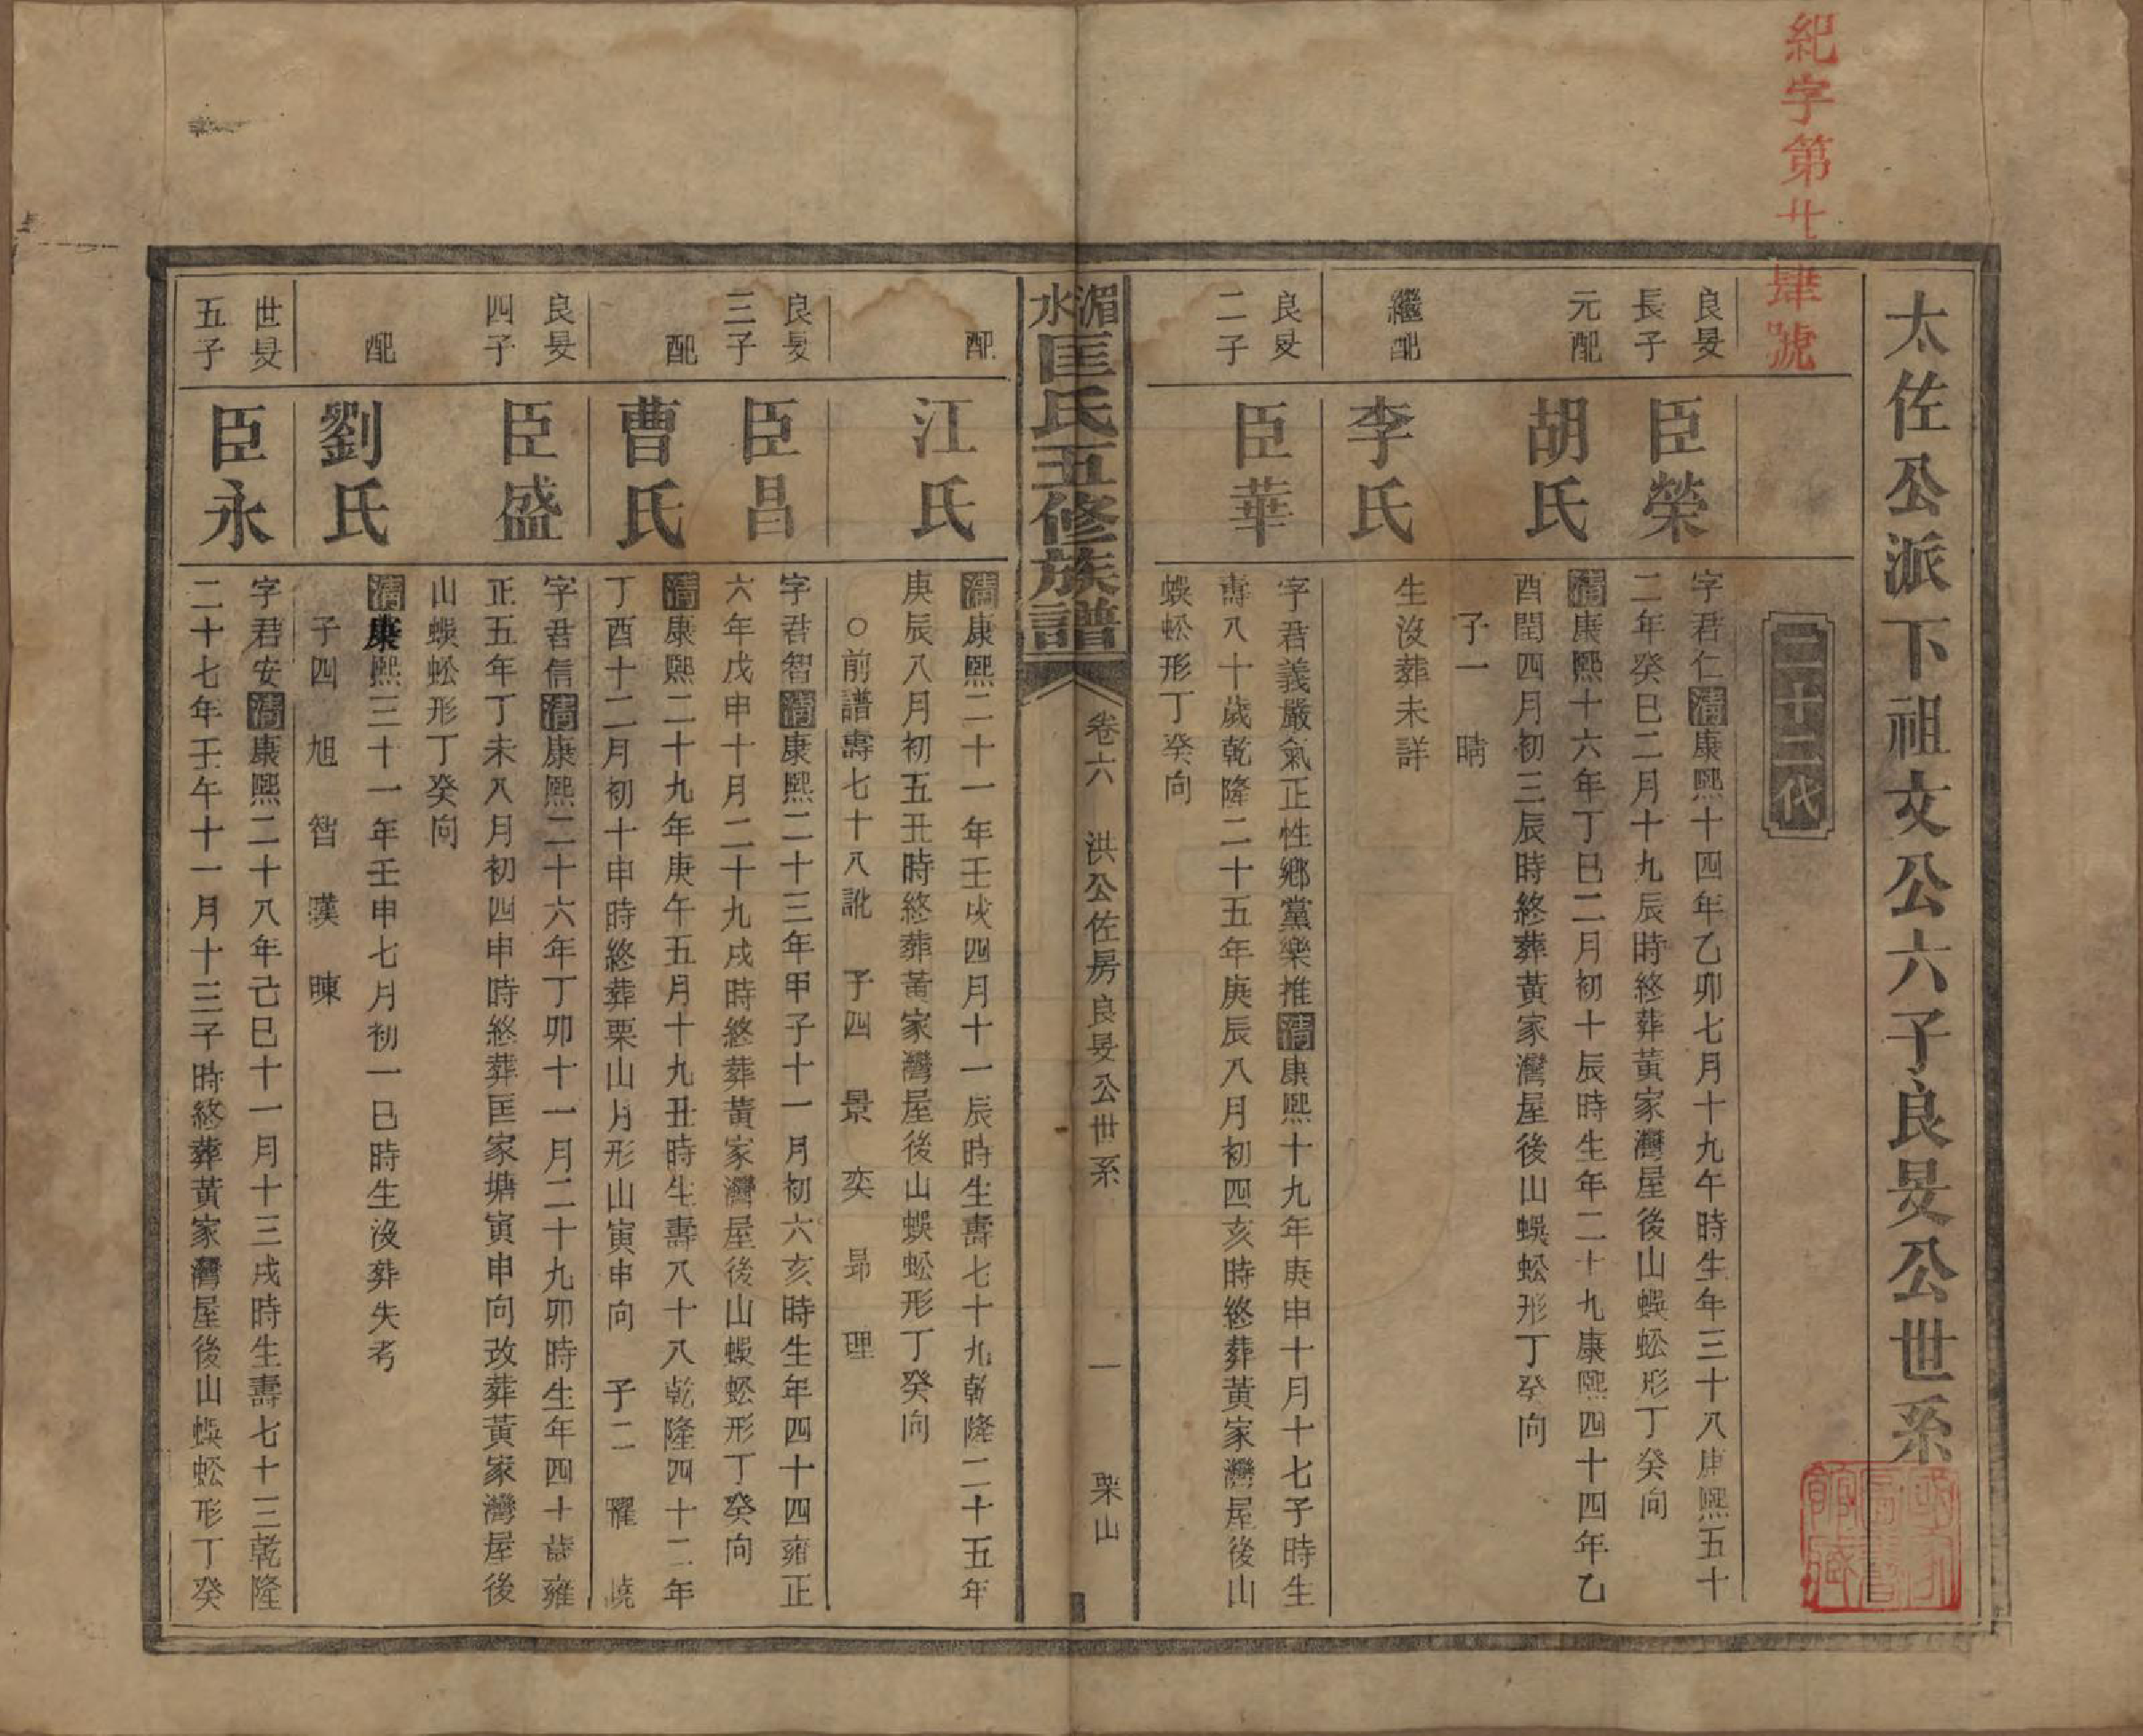 紀字第廿肆號
太佐公派下祖文公六子良旻公世系
二十二代
良旻
長子
臣榮
字君仁清康熙十四年乙卯七月十九午時生年三十八康熙五十
二年癸巳二月十九辰時終葬黃家灣屋後山蜈蚣形丁癸向
元配
胡氏
清康熙十六年丁巳二月初十辰時生年二十九康熙四十四年乙
酉閏四月初三辰時終葬黃家灣屋後山蜈蚣形丁癸向
子一　晴
繼配
李氏
生沒葬未詳
良旻
二子
臣華
字君義嚴氣正性鄉黨樂推清康熙十九年庚申十月十七子時生
壽八十歲乾隆二十五年庚辰八月初四亥時終葬黃家灣屋後山
蜈蚣形丁癸向
湄水匡氏五修族譜
卷六　洪公佐房良旻公世系　一　栗山
配
江氏
清康熙二十一年壬戌四月十一辰時生壽七十九乾隆二十五年
庚辰八月初五丑時終葬黃家灣屋後山蜈蚣形丁癸向
○前譜壽七十八訛　子四　景　奕　昻　理
良旻
三子
臣昌
字君智清康熙二十三年甲子十一月初六亥時生年四十四雍正
六年戊申十月二十九戌時終葬黃家灣屋後山蜈蚣形丁癸向
配
曹氏
清康熙二十九年庚午五月十九丑時生壽八十八乾隆四十二年
丁酉十二月初十申時終葬栗山月形山寅申向　子二　曜　曉
良旻
四子
臣盛
字君信清康熙二十六年丁卯十一月二十九卯時生年四十歲雍
正五年丁未八月初四申時終葬匡家塘寅申向改葬黃家灣屋後
山蜈蚣形丁癸向
配
劉氏
清康熙三十一年壬申七月初一巳時生沒葬失考
子四　旭　智　暵　暕
世旻
五子
臣永
字君安清康熙二十八年己巳十一月十三戌時生壽七十三乾隆
二十七年壬午十一月十三子時終葬黃家灣屋後山蜈蚣形丁癸